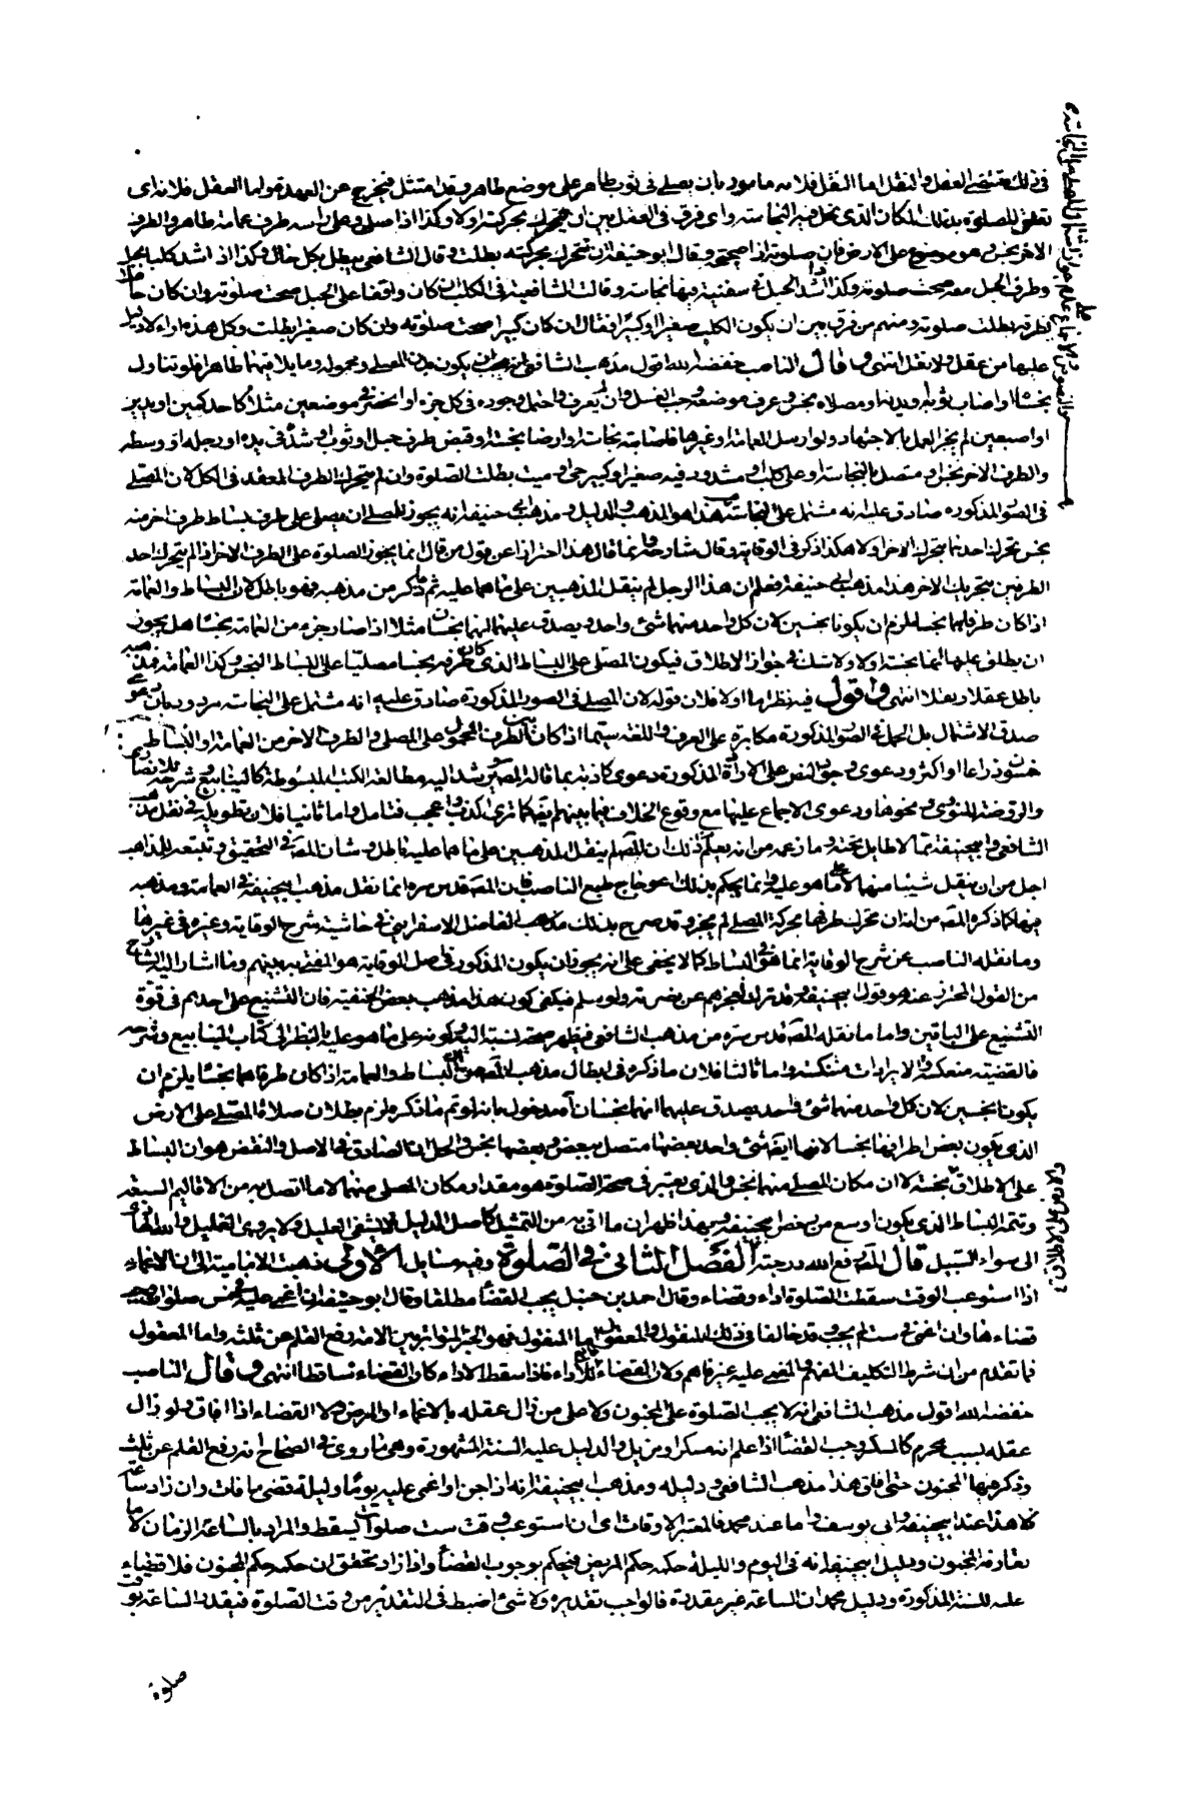 في ذلك مقتضى العقل والنقل اما النقل فلانه مامور بان يصلى في ثوب طاهر على موضع طاهر وقد امتثل فيخرج عن العهدة واما العقل فلانه اى
تعلق للصلوة بذلك المكان الذى تحل فيه النجاسة واى فرق في العقل بين ان يتحرك بحركته اولا وكذا اذا صلى وعلى راسه طرف عمامة طاهر والطرف
الاخر نجس وهو موضوع على الارض فان صلوته صحيحة وقال ابو حنيفة ان تحرك بحركته بطلت وقال الشافعى يبطل بكل حال وكذا اذا شد كلبا بحبل
وطرف الحبل معه صحت صلوته وكذا لو شد الحبل في سفينة فيها نجاسة وقالت الشافعية في الكلب ان كان واقفا على الحبل صحت صلوته وان كان حاملا
لطرفه بطلت صلوته ومنهم من فرق بين ان يكون الكلب صغيرا او كبيرا فقال ان كان كبيرا صحت صلوته وان كان صغيرا بطلت وكل هذه اراء لا دليل
عليها من عقل ولا نقل انتهى وقال الناصب خفضه الله اقول مذهب الشافعى انه يجب ان يكون بدن المصلى ومحموله وما يلاقيهما طاهرا فلو تناول
نجسا او اصاب ثوبه او بدنه او مصلاه نجس وعرف موضعه وجب الغسل وان لم يعرف واحتمل وجوده في كل جزء او انحصر في موضعين مثلا كاحد كمين او يدين
او اصبعين لم يجز العمل بالاجتهاد ولو ارسل العمامة او غيرها فاصابت نجاسة او ارضا نجسة او قبض طرف حبل او ثوب او شد في يده او رجله او وسطه
والطرف الاخر نجس او متصل بالنجاسة او على كلب او مشدود فيه صغير او كبير حي او ميت بطلت الصلوة وان لم يتحرك الطرف المعقد في الكل لان المصلى
في الصور المذكورة صادق عليه انه مشتمل على النجاسة هذا هو المذهب والدليل ومذهب ابى حنيفة انه يجوز للمصلى ان يصلى على طرف بساط طرف اخر منه
نجس تحرك احدهما بتحرك الاخر اولا هكذا ذكر في الوقاية وقال شارحه وانما قال هذا احترازا عن قول من قال انما يجوز الصلوة على الطرف الاخر اذا لم يتحرك احد
الطرفين بتحريك الاخر هذا مذهب ابى حنيفة فعلم ان هذا الرجل لم ينقل المذهبين على ما هما عليه ثم ما ذكر من مذهبه فهو باطل لان البساط والعمامة
اذا كان طرفهما نجسا يلزم ان يكونا نجسين لان كل واحد منهما شئ واحد ويصدق عليهما انهما نجسان مثلا اذا صار جزء من العمامة نجسا هل يجوز
ان يطلق عليها انها نجسة اولا ولا شك في جواز الاطلاق فيكون المصلى على البساط الذى كان طرفه نجسا مصليا على البساط النجس وكذا العمامة فمذهبه
باطل عقلا ونقلا انتهى واقول فيه نظر اما اولا فلان قوله لان المصلى في الصور المذكورة صادق عليه انه مشتمل على النجاسة مردود بان دعوى
صدق الاشتمال بل الحمل في الصور المذكورة مكابرة على العرف واللغة سيما اذا كان بين الطرف المحمول على المصلى والطرف الاخر من العمامة والبساط
خمسون ذراعا او اكثر ودعوى وجود النص على الاراء المذكورة دعوى كاذبة
والروضة للنووى ونحوها ودعوى الاجماع عليها مع وقوع الخلاف فيما بينهم كما ترى اكذب واعجب فتامل واما ثانيا فلان تطويله في نقل مذهب
الشافعى وابى حنيفة مما لا طائل تحته وما زعمه من انه يعلم من ذلك ان المص لم ينقل المذهبين على ما هما عليه باطل وشان المص في التحقيق وتتبعه للمذاهب
اجل من ان ينقل شيئا منها الا على ما هو عليه وانما يحكم بذلك اعوجاج طبع الناصب فان المص قدس سره انما نقل مذهب ابى حنيفة في العمامة ومذهبه
فيها كما ذكره المص من انه ان تحرك طرفها بحركة المصلى لم يجز وقد صرح بذلك الفاضل الاسفراينى في حاشية شرح الوقاية وغيره في غيرها
وما نقله الناصب عن شرح الوقاية انما هو في البساط كما لا يخفى على انه يجوز ان يكون المذكور في اصل الوقاية هو المفتى به بينهم وما اشار اليه الشارح
من القول المحترز عنه هو قول ابى حنيفة وقد ترك لعجزهم عن نصرته ولو سلم فيكفى كون هذا مذهب بعض الحنفية فان التشنيع على احدهم في قوة
التشنيع على الباقين واما ما نقله المص قدس سره من مذهب الشافعى فيظهر صحة نسبته اليه وكونه على ما هو عليه بالنظر الى كتاب الينابيع وشرحه
فالقضية منعكسة والايرادات منتكسة واما ثالثا فلان ما ذكره في ابطال مذهب المص من ان البساط والعمامة اذا كان طرفاهما نجسا يلزم ان
يكونا نجسين لان كل واحد منهما شئ واحد يصدق عليهما انهما نجسان آه مدخول بانه لو تم ما ذكره لزم بطلان صلاة المصلى على الارض
الذى يكون بعض اطرافها نجسا لانها ايضا شئ واحد بعضها متصل ببعض وبعضها نجس والحل ان الصادق في الاصل والنقض هو ان البساط
على الاطلاق نجسة لا ان مكان المصلى منها نجس والذى يعتبر في صحة الصلوة هو مقدار مكان المصلى منهما لا ما اتصل به من الاقاليم السبعة
وتتمة البساط الذى يكون اوسع من بعض ابى حنيفة وبهذا ظهر ان ما اتى به من التمثيل كاصل الدليل لا يشفى العليل ولا يروى الغليل والله الهادى
الى سواء السبيل قال المص رفع الله درجته الفصل الثانى في الصلوة وفيه مسايل الاولى ذهبت الامامية الى ان الاغماء
اذا استوعب الوقت سقطت الصلوة اداء وقضاء وقال احمد بن حنبل يجب القضأ مطلقا وقال ابو حنيفة ان اغمى عليه في خمس صلوات وجب
قضاءها وان اغمى في ست لم يجب وقد خالفا في ذلك المنقول والمعقول اما المنقول فهو الخبر المتواتر بين الامة رفع القلم عن ثلثة واما المعقول
فما تقدم من ان شرط التكليف الفهم والمغمى عليه غير فاهم ولان القضاء تابع للاداء فاذا سقط الاداء كان القضاء ساقطا انتهى وقال الناصب
خفضه الله اقول مذهب الشافعى انه لا يجب الصلوة على المجنون ولا على من زال عقله بالاغماء او المرض ولا القضاء اذا افاق ولو زال
عقله بسبب محرم كالسكر وجب القضأ اذا علم انه مسكر او مزيل والدليل عليه السنة المشهورة وهى ما روى في الصحاح انه رفع القلم عن ثلث
وذكر فيها المجنون حتى افاق هذا مذهب الشافعى ودليله ومذهب ابى حنيفة انه اذا جن او اغمى عليه يوما وليلة قضى ما فات وان زاد ساعة
فلا هذا عند ابى حنيفة وابى يوسف واما عند محمد فالمعتبر الاوقات اى ان استوعب وقت ست صلوات يسقط والمراد بالساعة الزمان لا ما
تعارفه المنجمون ودليل ابى حنيفة انه في اليوم والليلة حكمه حكم المريض فيحكم بوجوب القضأ واذا زاد تحقق ان حكمه حكم المجنون فلا قضاء
عليه للسنة المذكورة ودليل محمد ان الساعة غير مقدرة فالواجب تقديره ولا شئ اضبط في التقدير من وقت الصلوة فيقدر الساعة بوقت
صلوة